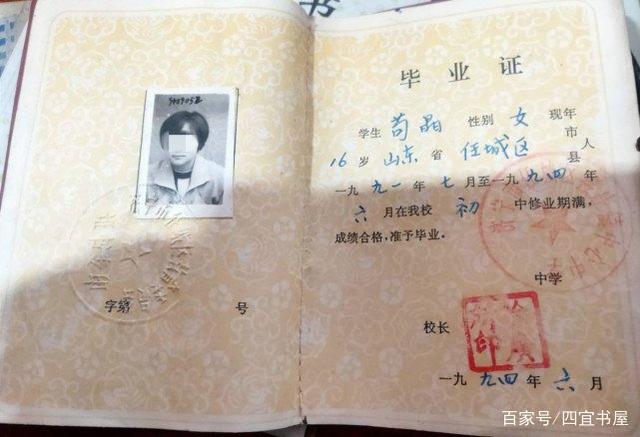 书
9409052
字第 号
毕业证
学生 苟晶 性别 女 现年
16 岁 山东 省 任城区 市县 人
一九九一年 七 月至一九九四年
六 月在我校 初 中修业期满,
成绩合格,准予毕业。
中学
校长
一九九四年 六 月
百家号/四宜书屋